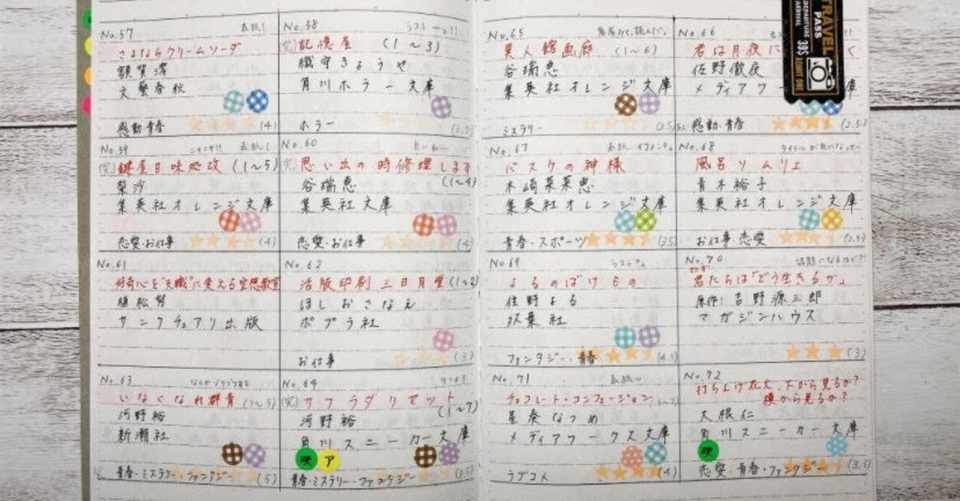 No.57
さよならクリームソーダ
額賀澪
文藝春秋
感動・青春
(4)
No.58
記憶屋 (1~3)
織守きょうや
角川ホラー文庫
ホラー
No.59
鍵屋甘味処改 (1~5)
梨沙
集英社オレンジ文庫
恋愛・お仕事
(4)
No.60
思い出の時修理します
(1~4)
谷瑞恵
集英社文庫
恋愛・お仕事
(4)
No.61
好奇心を"天職"に変える空想教室
植松努
サンクチュアリ出版
No.62
活版印刷三日月堂
ほしおさなえ
ポプラ社
お仕事
(3)
No.63
いなくなれ群青
河野裕
新潮社
青春・ミステリー・ファンタジー
(5)
No.64
サクラダリセット
(1~7)
河野裕
角川スニーカー文庫
映 ア
青春・ミステリー・ファンタジー
(3.5)
No.65
異人館画廊 (1~6)
谷瑞恵
集英社オレンジ文庫
ミステリー
No.66
君は月夜に
佐野徹夜
メディアワー 文庫
感動・青春
TRAVEL
PASS
No.67
バスケの神様
木崎菜菜恵
集英社オレンジ文庫
青春・スポーツ
No.68
風呂ソムリエ
青木裕子
集英社オレンジ文庫
お仕事・恋愛
No.69
よるのばけもの
住野よる
双葉社
ファンタジー・青春
No.70
君たちはどう生きるか
原作:吉野源三郎
マガジンハウス
(3)
No.71
チョコレート・コンフュージョン
星奏なつめ
メディアワークス文庫
ラブコメ
(4)
No.72
打ち上げ花火、下から見るか?
横から見るか?
大根仁
角川スニーカー文庫
映
恋愛・青春・ファンタジー
(3.5)